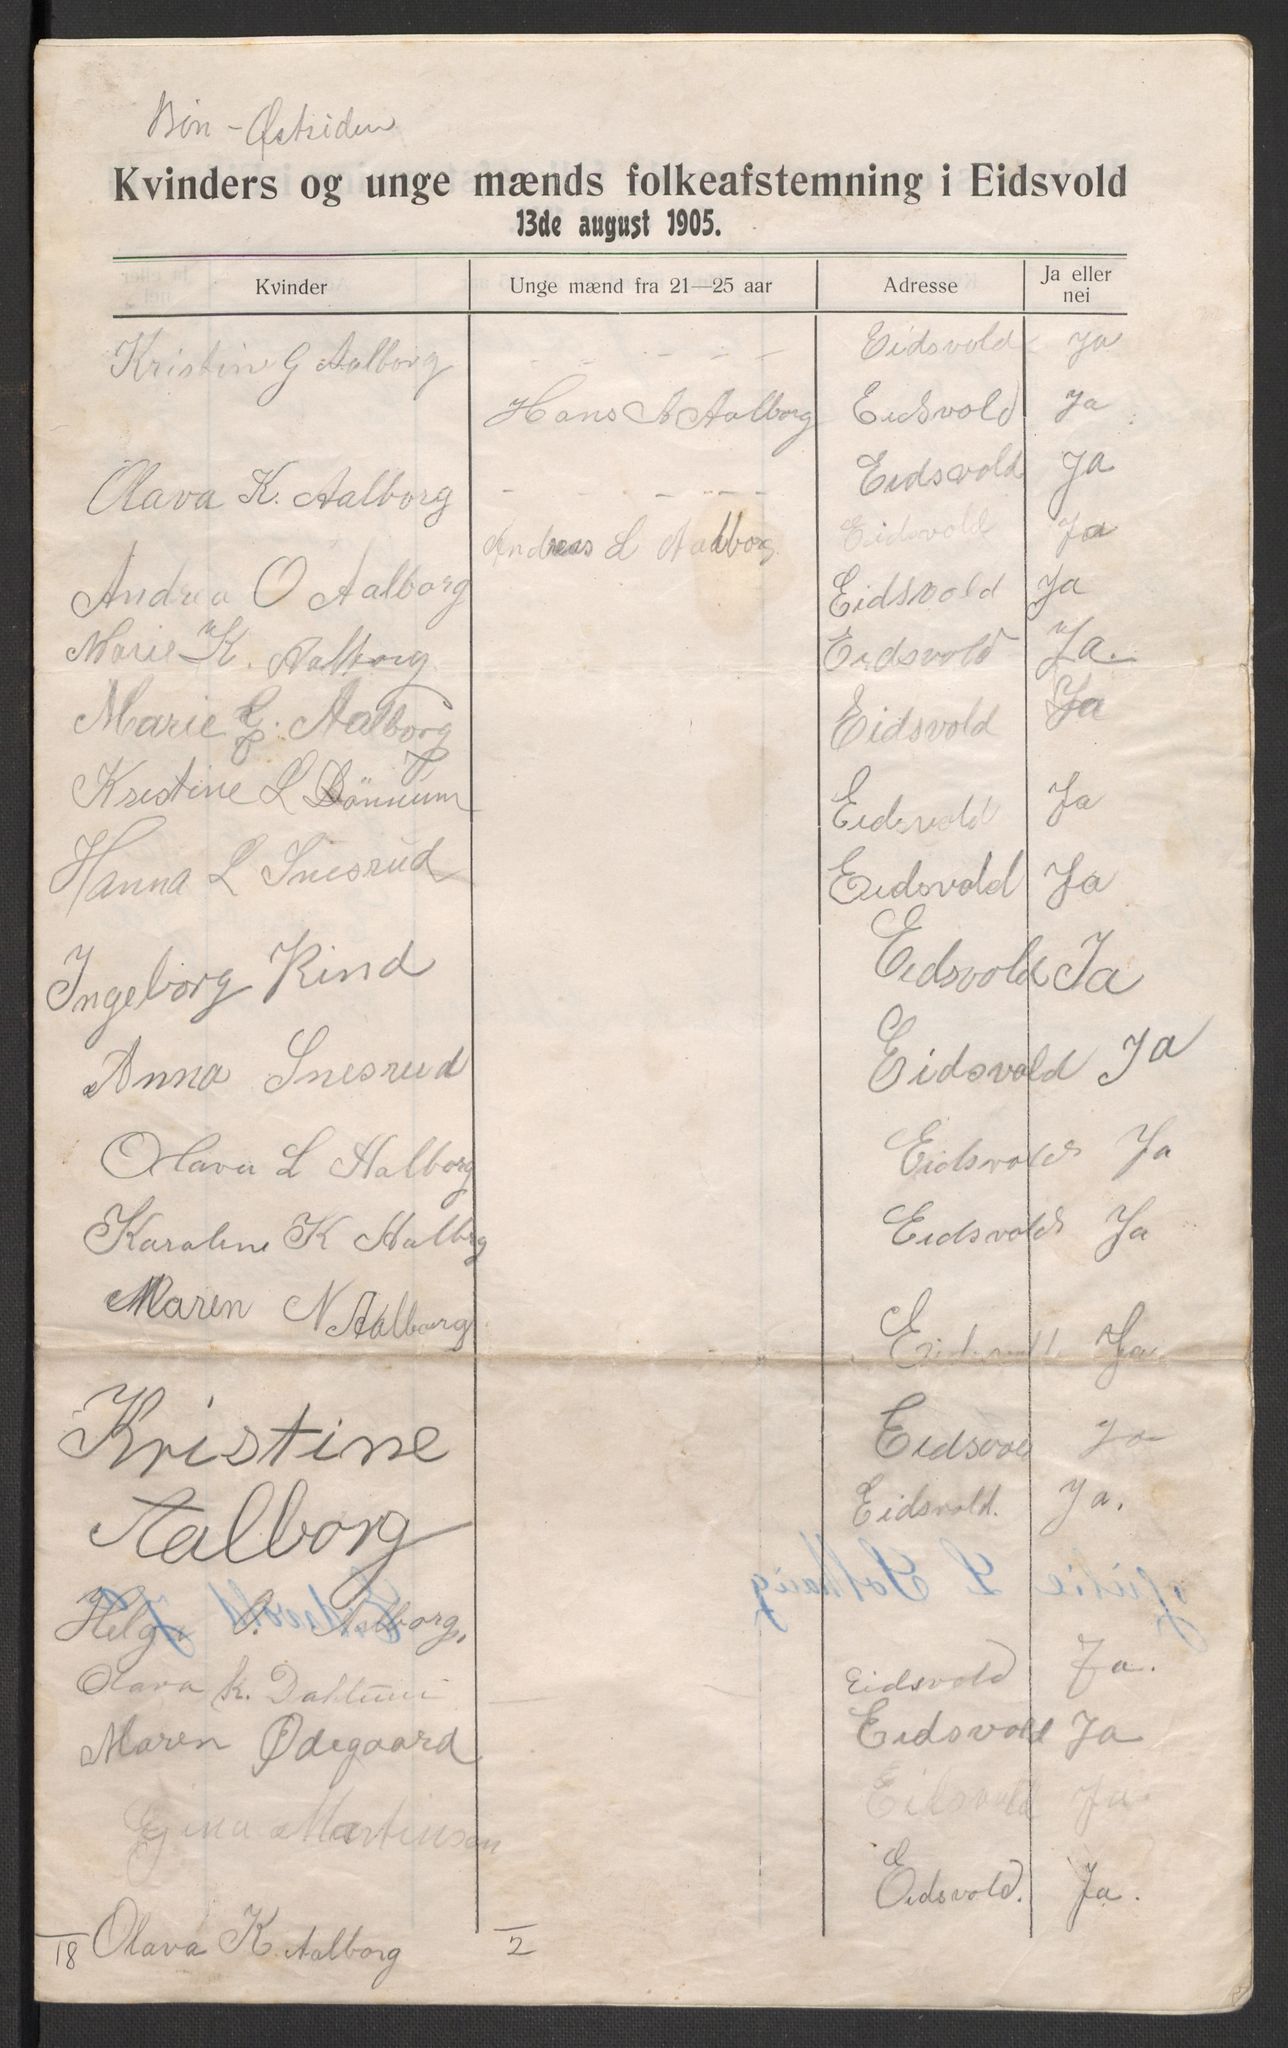 Bøn - Østsiden
Kvinders og unge mænds folkeafstemning i Eidsvold
13de august 1905.
Kvinder Unge mænd fra 21—25 aar Adresse Ja eller nei
Kristine G Aalborg - - - - - Eidsvold Ja
Hans A Aalborg Eidsvold Ja
Olava K. Aalborg - - - - - - Eidsvold Ja
Andreas L Aalborg. Eidsvold Ja
Andrea O Aalborg Eidsvold Ja
Marie K. Aalborg. Eidsvold Ja.
Marie G. Aalborg Eidsvold Ja
Kristine L Dönnum Eidsvold Ja
Hanna L Snesrud Eidsvold Ja
Ingeborg Rind Eidsvold Ja
Anna Snesrud Eidsvold Ja
Olava L Aalborg Eidsvold Ja
Karoline K Aalbrg Eidsvold Ja
Maren N Aalborg Eidsvold Ja
Kristine Eidsvold Ja
Aalborg Eidsvold. Ja.
L Solhaug
Helga O. Aalborg. Eidsvold Ja
Olava K. Eidsvold Ja.
Maren Ødegaard Eidsvold Ja
Gina Martinsen Eidsvold Ja
Eidsvold. Ja.
18 Olava K. Aalborg 2